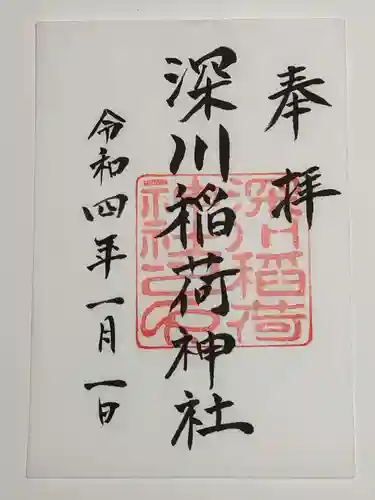 奉拝
深川稲荷神社
令和四年一月一日
深川稲荷